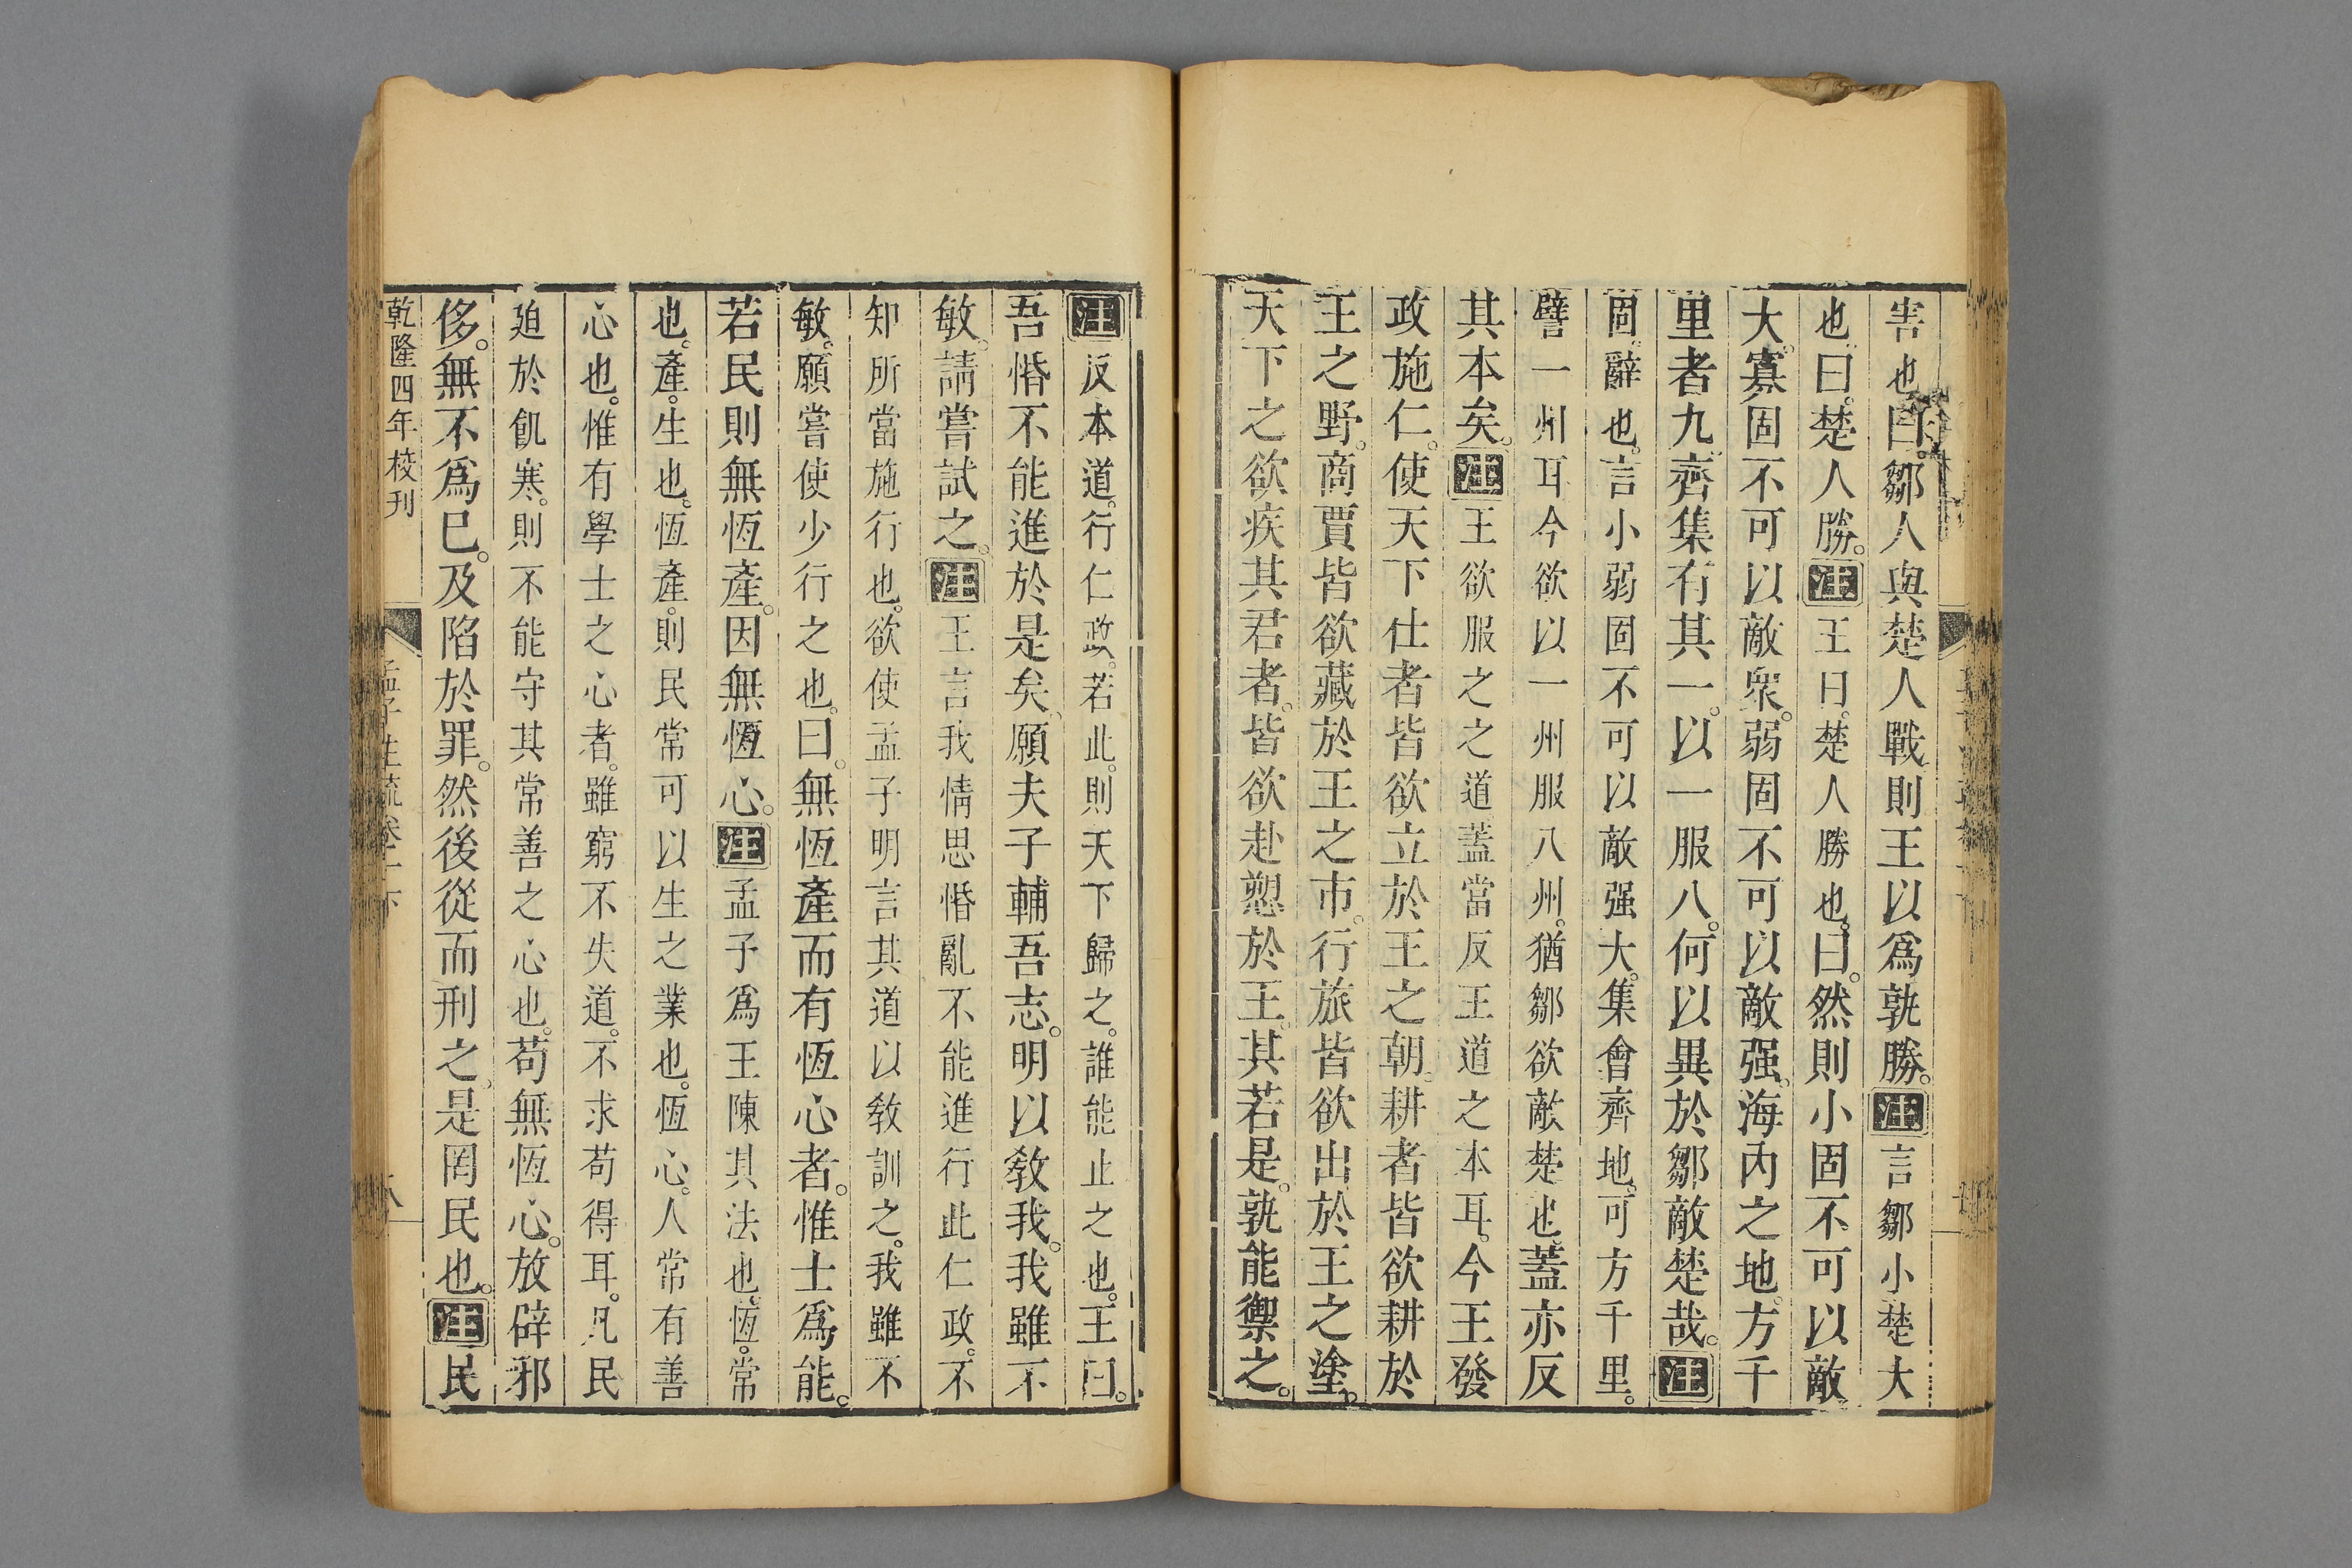 害也曰。鄒人與楚人戰則王以爲孰勝。注言鄒小楚大
也曰。楚人勝。注王曰。楚人勝也。曰。然則小固不可以敵
大。寡固不可以敵衆。弱固不可以敵强。海内之地。方千
里者九。齊集有其一。以一服八。何以異於鄒敵楚哉。注
固。辭也。言小弱固不可以敵强大。集會齊地。可方千里。
譬一州耳今欲以一州服八州。猶鄒欲敵楚也。蓋亦反
其本矣。注王欲服之之道蓋當反王道之本耳。今王發
政施仁。使天下仕者皆欲立於王之朝。耕者皆欲耕於
王之野。商賈皆欲藏於王之市。行旅皆欲出於王之塗。
天下之欲疾其君者。皆欲赴愬於王。其若是。孰能禦之。
注反本道。行仁政。若此。則天下歸之。誰能止之也。王曰。
吾惛不能進於是矣。願夫子輔吾志。明以敎我。我雖不
敏。請嘗試之。注王言我情思惛亂不能進行此仁政。不
知所當施行也。欲使孟子明言其道以敎訓之。我雖不
敏。願嘗使少行之也。曰。無恆產而有恆心者。惟士爲能。
若民則無恆產。因無恆心。注孟子爲王陳其法也。恆。常
也。產。生也。恆產。則民常可以生之業也。恆心。人常有善
心也。惟有學士之心者。雖窮不失道。不求苟得耳。凡民
迫於飢寒。則不能守其常善之心也。苟無恆心。放辟邪
侈。無不爲已。及陷於罪。然後從而刑之。是罔民也。注民
乾隆四年校刊
孟子注疏卷一下
八